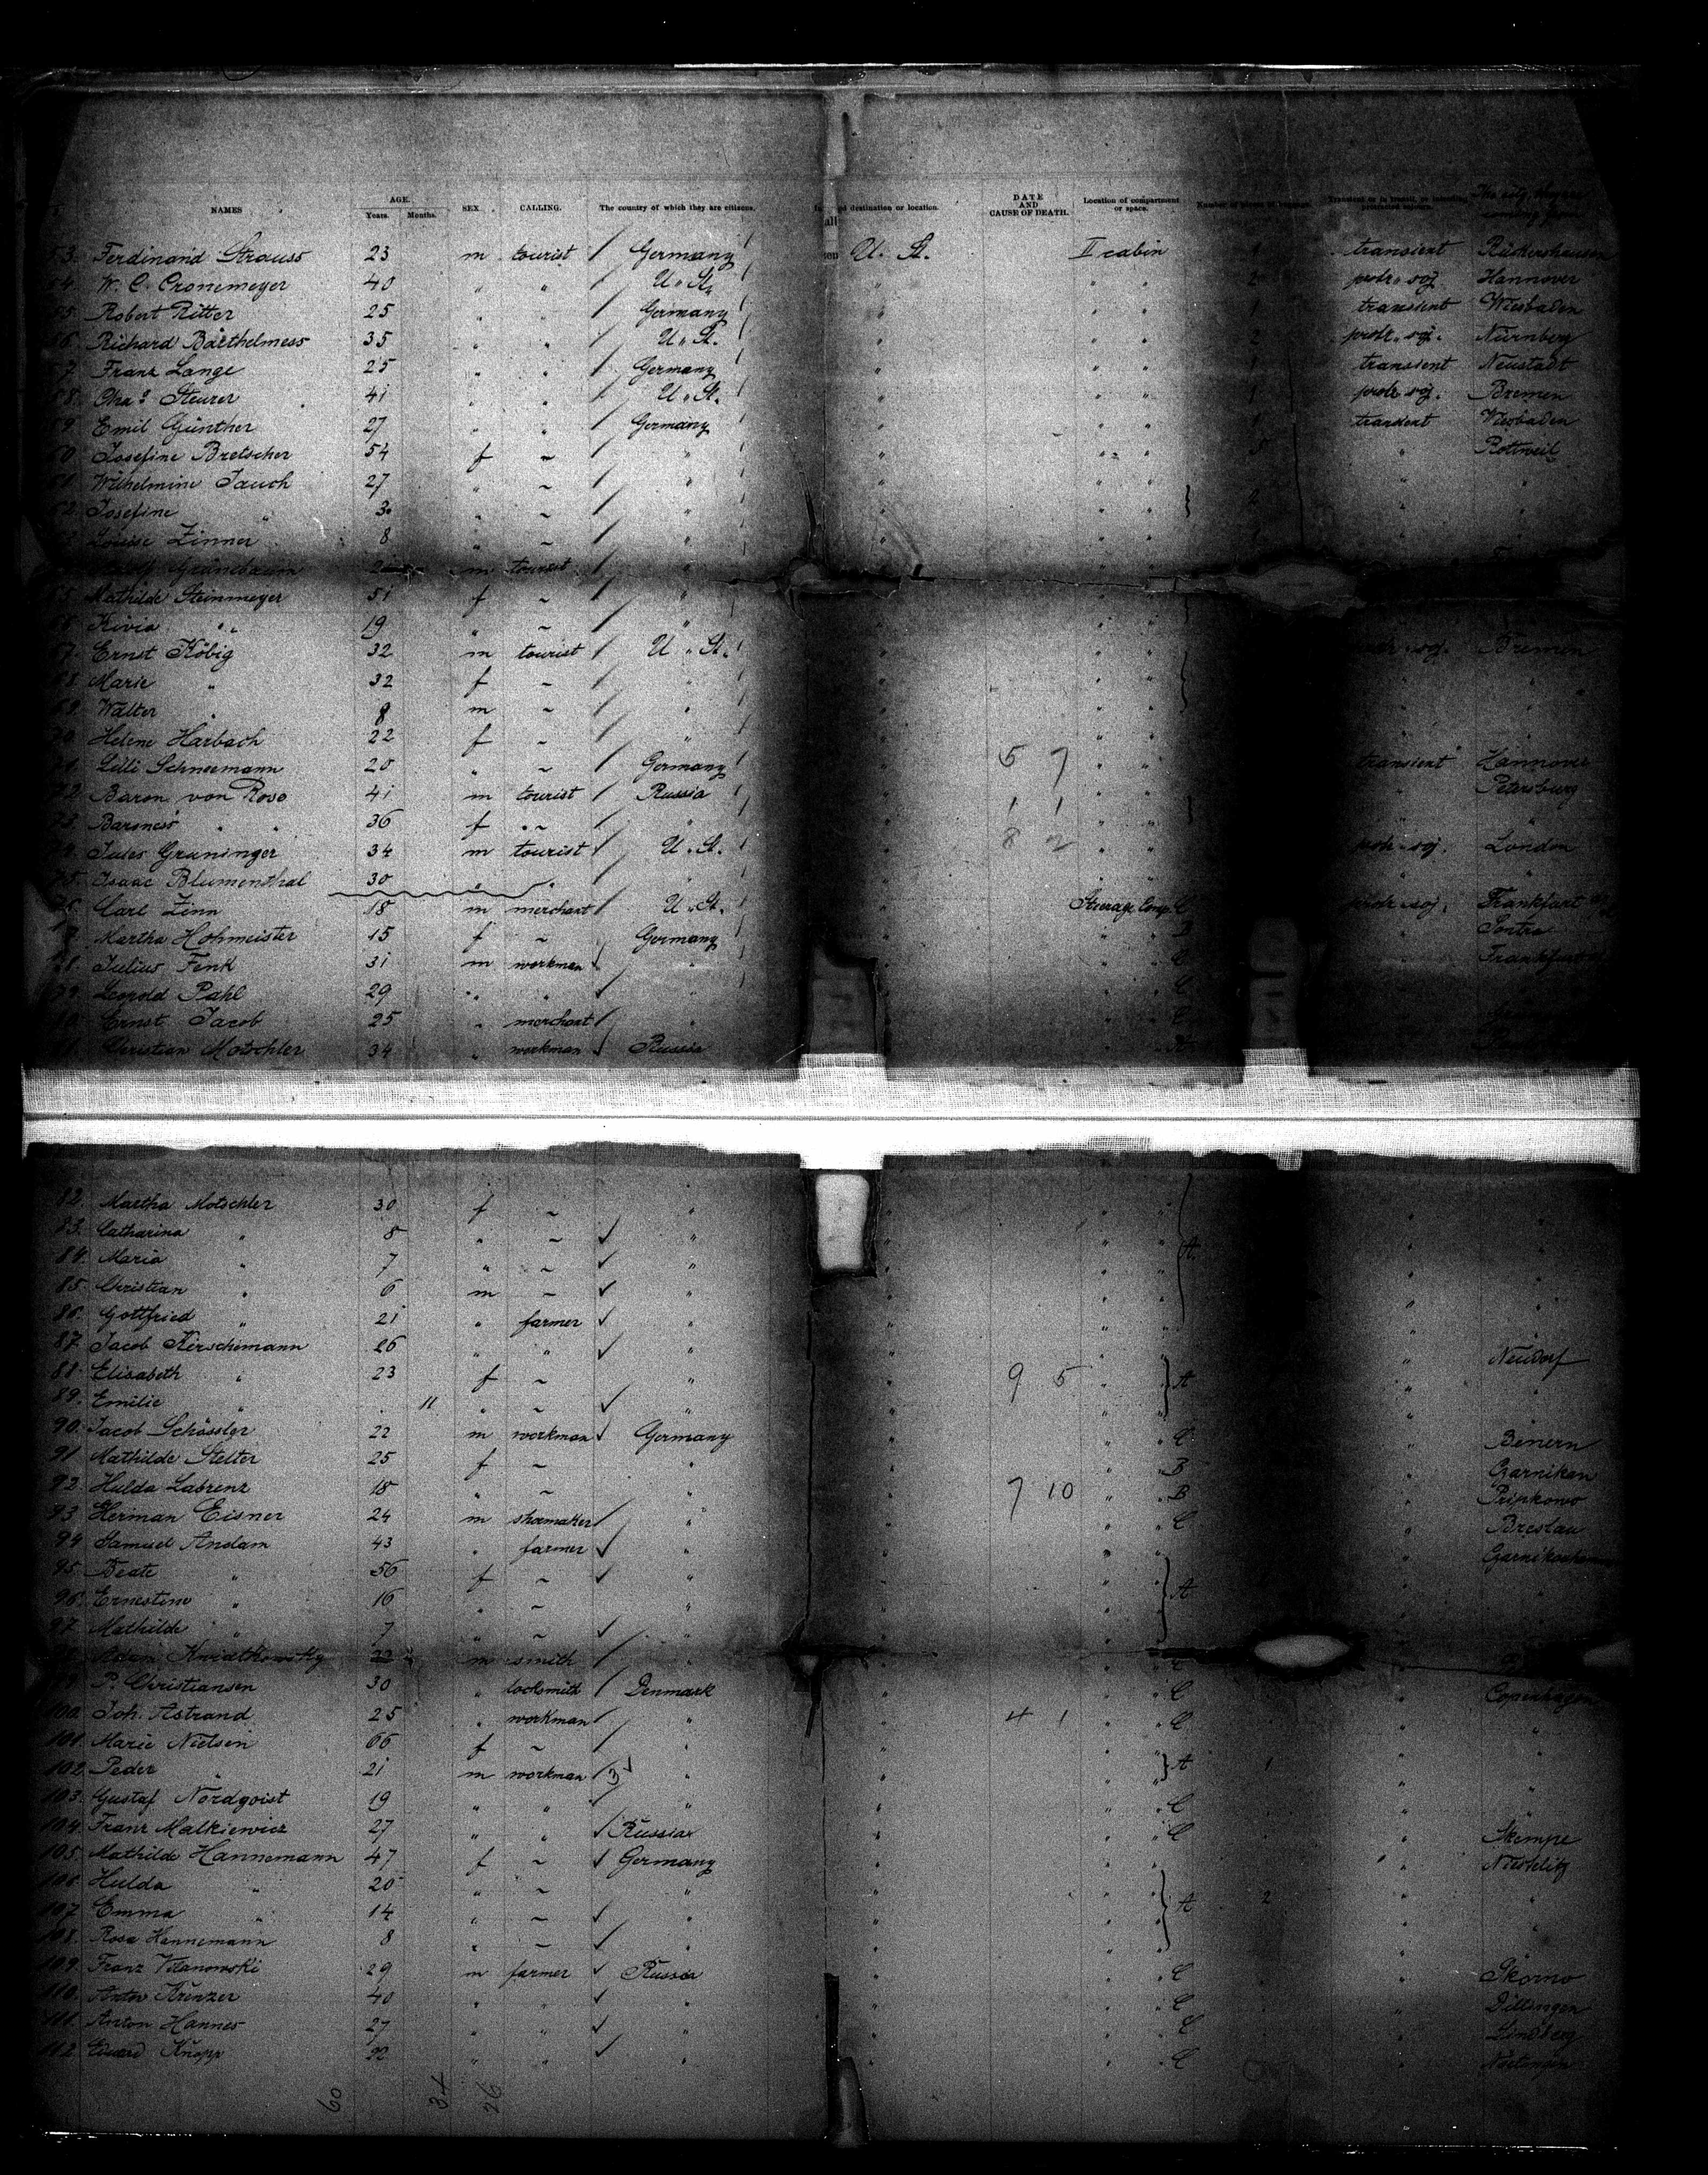 NAMES AGE. Years. Months. SEX. CALLING. The country of which they are citizens. destination or location. DATE AND CAUSE OF DEATH. Location of compartment or space. Number of pieces of baggage. Transient or in transit, or intending protracted sojourn. The city
53. Ferdinand Strauss 23 m tourist / Germany U. St. II cabin 1 transient
54. W. C. Cronemeyer 40 " " / U. St. " " " 2 protr. soj. Hannover
55. Robert Ritter 25 " " / Germany " " " 1 transient Wiesbaden
56. Richard Barthelmess 35 " " / U. St. " " " 2 protr. soj. Nürnberg
57. Franz Lange 25 " " / Germany " " " 1 transient Neustadt
58. Chas. Steurer 41 " " / U. St. " " " 1 protr. soj. Bremen
59. Emil Günther 27 " " / Germany " " " 1 transient Wiesbaden
60. Josefine Bretscher 54 f ~ / " " " " 5 " Rottweil
61. Wilhelmine Jauch 27 " ~ / " " " " " "
62. Josefine " " ~ / " " " " 2 " "
Louise Zinner 8 " ~ / " " " "
Grünebaum m tourist / "
65. Mathilde Steinmeyer 51 f ~ / " " " "
" 19 " ~ / " " " "
67. Ernst Köbig 32 m tourist / U. St. " " " protr. soj. Bremen
68. Marie " 32 f ~ / " " " " " "
69. Walter " 8 m ~ / " " " " " "
70. Helene Harbach 22 f ~ / " " " " " "
71. Lilli Schneemann 20 " ~ / Germany " 5 7 " " transient Hannover
72. Baron von 41 m tourist / Russia " " " " Petersburg
73. Baroness " " 36 f ~ / " " 1 1 " " " "
74. Jules Gruninger 34 m tourist / U. St. " 8 2 " " protr. soj. London
75. Isaac Blumenthal 30 " " / " " " " " "
76. Carl Zinn 18 m merchant / U. St. " Steerage Comp. C protr. soj. Frankfurt
77. Martha Hohmeister 15 f ~ / Germany " " " B "
78. Julius Fenk 31 m workman / " " " " C " Frankfurt
79. Leopold Pahl 29 " " / " " " " C
80. Ernst Jacob 25 " merchant / " " " " C
81. Christian Motschler 34 " workman / Russia " " " A
82. Martha Motschler 30 f ~ " " " " " "
83. Catharina " 8 " ~ ✓ " " " " " "
84. Maria " 7 " ~ ✓ " " " " A " "
85. Christian " 6 m ~ ✓ " " " " " "
86. Gottfried " 21 " farmer ✓ " " " " " "
87. Jacob Kerschemann 26 " " ✓ " " " " " Neudorf
88. Elisabeth " 23 f ~ " " 9 5 " A " "
89. Emilie " . 11 " ~ ✓ " " " " " "
90. Jacob Schässler 22 m workman ✓ Germany " " " C "
91. Mathilde Stelter 25 f ~ " " " " B " Czarnikau
92. Hulda Labrenz 18 " ~ " " 7 10 " " B "
93. Herman Eisner 24 m shoemaker / " " " " C " Breslau
94. Samuel Andam 43 " farmer ✓ " " " " "
95. Beate " 56 f ~ ✓ " " " " " "
96. Ernestine " 16 " ~ " " " " A " "
97. Mathilde " 7 " ~ ✓ " " " " " "
98. Adam Kwiatkowsky 22 m smith / " " " "
99. P. Christiansen 30 " locksmith / Denmark " " " C " Copenhagen
100. Joh. Astrand 25 " workman / " " 4 1 " " C " "
101. Marie Nielsen 66 f ~ / " " " " " "
102. Peder " 21 m workman / 3 " " " " A 1 " "
103. Gustaf Nordqvist 19 " " / " " " " C " "
104. Franz Malkiewicz 27 " " ✓ Russia " " " C " Skempe
105. Mathilde Hannemann 47 f ~ ✓ Germany " " " "
106. Hulda " 20 " ~ " " " " " "
107. Emma " 14 " ~ ✓ " " " " A 2 " "
108. Rosa Hannemann 8 " ~ ✓ " " " " " "
109. Franz 29 m farmer ✓ Russia " " " C "
110. Anton Krenzer 40 " " ✓ " " " " C " Dillingen
111. Anton Hannes 27 " " ✓ " " " " C "
112. Eduard Knopp 22 " " ✓ " " " " C "
60 34 26